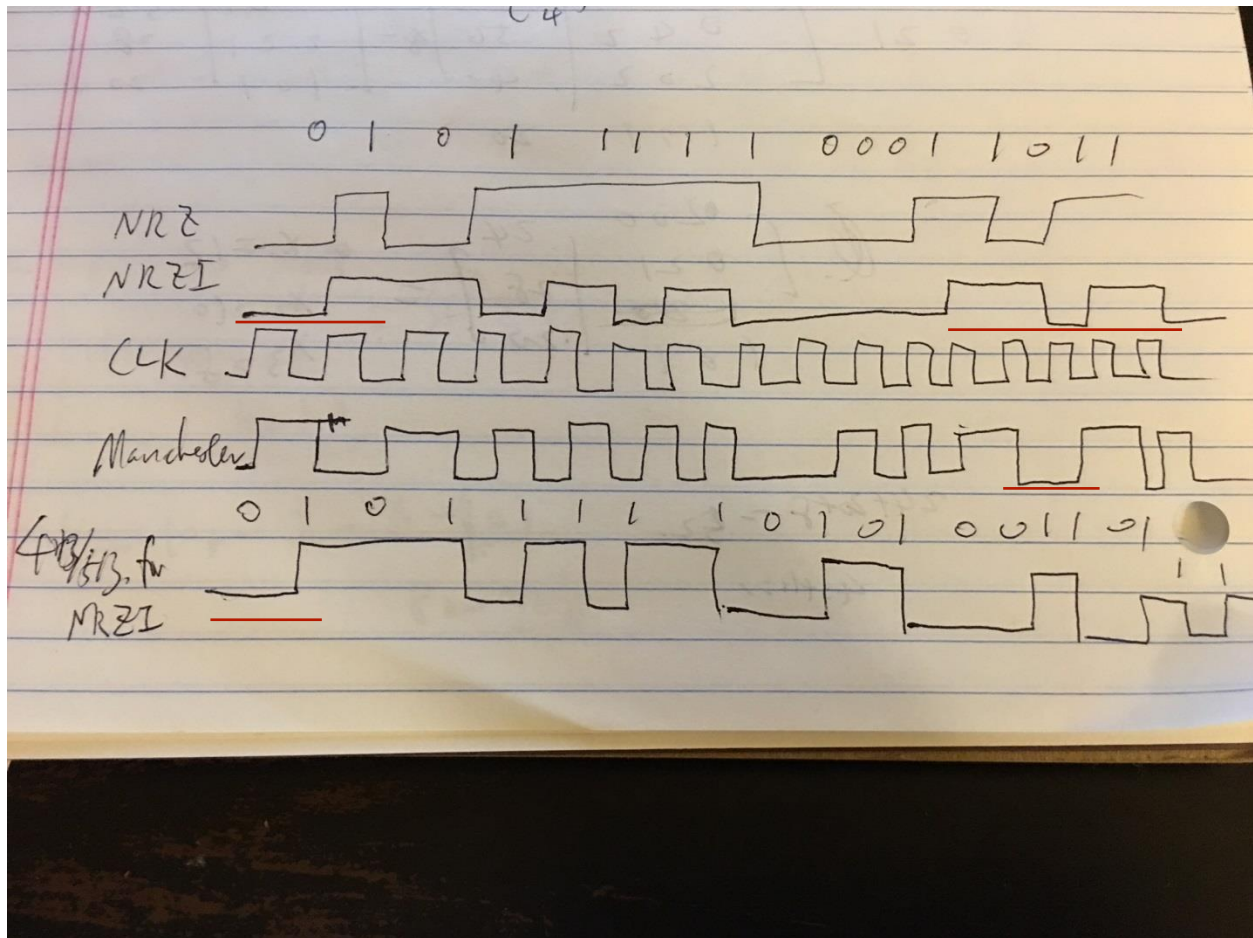 0 1 0 1 1 1 1 1 0 0 0 1 1 0 1 1
NRZ
NRZI
CLK
Manchester
0 1 0 1 1 1 1 1 0 1 0 1 0 0 1 1 0 1
1 1
4B/5B.
NRZI